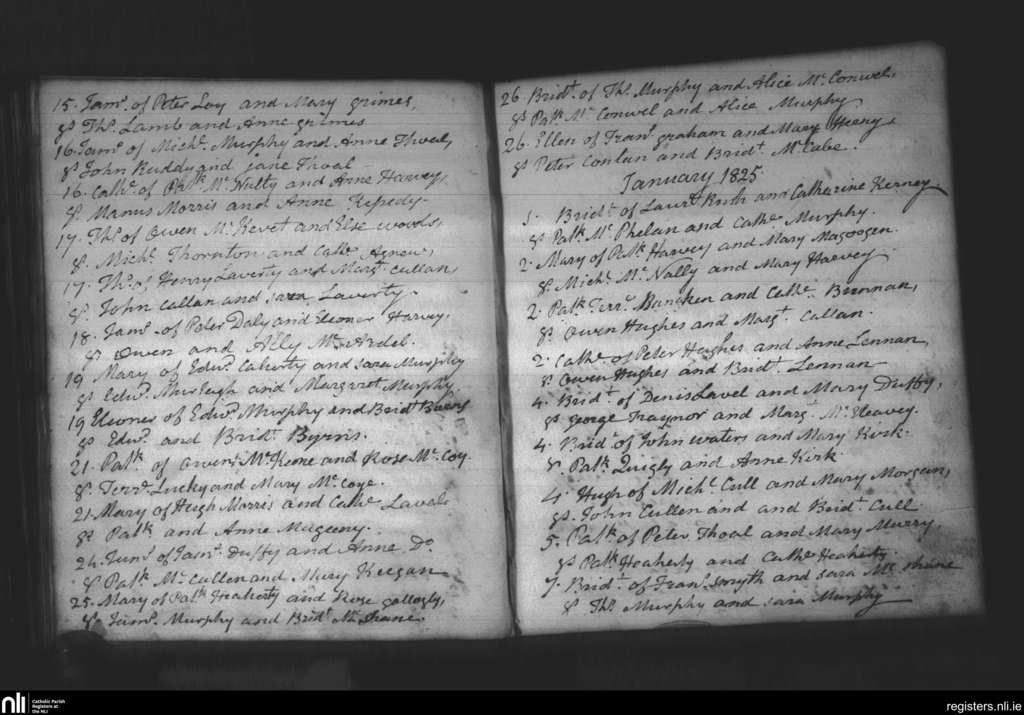 15. Jams. of Peter Loy and Mary grimes,
Sp Ths. Lamb and Anne grimes
16. Jams. of Michl. Murphy and Anne Thoal,
Sp John Ruddy and jane Thoal
16. Cathe. of Patk. Mc. Nulty and Anne Harvey,
Sp. Manus Morris and Anne
17. Ths. of Owen Mc. Kevet and Else woods,
Sp. Michl. Thornton and Cathe. Agnew,
17. Ths. of Henry Laverty and Margt. Callan,
Sp. John Callan and sara Laverty.
18. Jams. of Peter Daly and Eleoner Harvey.
Sp Owen and Ally Mc. Ardel.
19 Mary of Edwd. Caherty and sara Murphy
Sp Edwd. and Margret Murphy
19 Eleoner of Edwd. Murphy and Bridt.
Sp Edwd. and Bridt. Byrns.
21. Patk. of Owen Mc. Keone and Rose Mc. Coy
Sp. Terre. Lucky and Mary Mc. Coye.
21 Mary of Hugh Morris and Cathe. Lavel
Sp Patk. and Anne Mageeny.
24. Jams. of Jams. Duffy and Anne Do.
Sp Patk. Mc. Cullen and Mary Keegan
25. Mary of Patk. Heaherty and Rose gallogly,
Sp. Jams. Murphy and Bridt. Mc. Shane.
26 Bridt. of Ths. Murphy and Alice Mc. Conwel,
Sp Patk. Mc. Conwel and Alice Murphy
26. Ellen of Frans. graham and Mary Heery
Sp Peter Conlan and Bridt. Mc. Cabe.
January 1825
1. Bridt. of Laurt. Rush and Catharine Kerney
Sp Patk. Mc. Phelan and Cathe. Murphy.
2. Mary of Patk. Harvey and Mary Magoogen.
Sp. Michl. Mc. Nally and Mary Harvey
2. Patk. Terre. and Cathe. Brennan,
Sp. Owen Hughes and Margt. Callan.
2 Cathe. of Peter Hughes and Anne Lennan,
Sp. Owen Hughes and Bridt. Lennan
4. Bridt. of Denis Lavel and Mary Duffy,
Sp george Traynor and Margt. Mc. Eleavey.
4. Bridt. of John waters and Mary Kirk.
Sp. Patk. Quigly and Anne Kirk
4. Hugh of Michl. Cull and Mary Morgan,
Sp. John Cullen and and Bridt. Cull
5. Patk. of Peter Thoal and Mary Murry,
Sp Patk. Heaherty and Cathe. Heaherty.
7. Bridt. of Frans. smyth and sara Mc. shane
Sp Ths. Murphy and sara Murphy
nli
Catholic Parish
Registers at
the NLI
registers.nli.ie